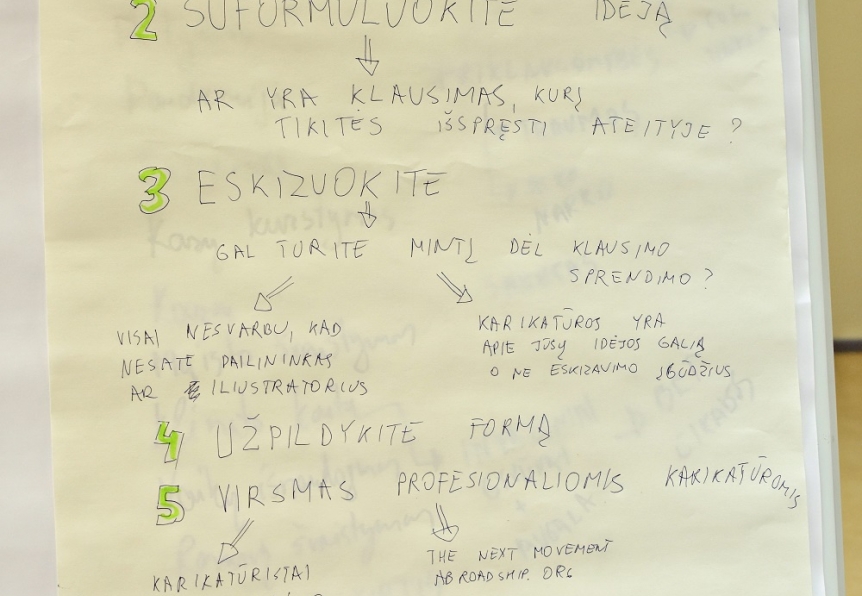 2 SUFORMULUOKITE IDĖJĄ
AR YRA KLAUSIMAS, KURĮ
TIKITĖS IŠSPRĘSTI ATEITYJE ?
3 ESKIZUOKITE
GAL TURITE MINTĮ DĖL KLAUSIMO
SPRENDIMO ?
VISAI NESVARBU, KAD
NESATE DAILININKAS
AR ILIUSTRATORIUS
KARIKATŪROS YRA
APIE JŪSŲ IDĖJOS GALIĄ
O NE ESKIZAVIMO ĮGŪDŽIUS
4 UŽPILDYKITE FORMĄ
5 VIRSMAS PROFESIONALIOMIS KARIKATŪROMIS
KARIKATŪRISTAI
THE NEXT MOVEMENT
ABROADSHIP.ORG